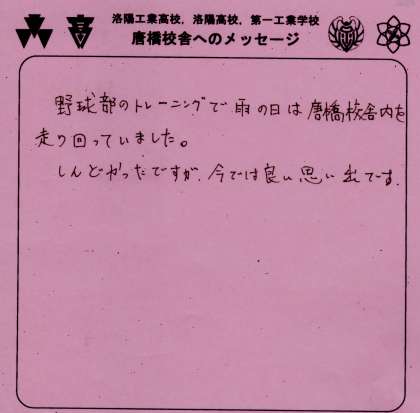 洛陽工業高校，洛陽高校，第一工業学校
唐橋校舎へのメッセージ
野球部のトレーニングで雨の日は唐橋校舎内を
走り回っていました。
しんどかったですが、今では良い思い出です。